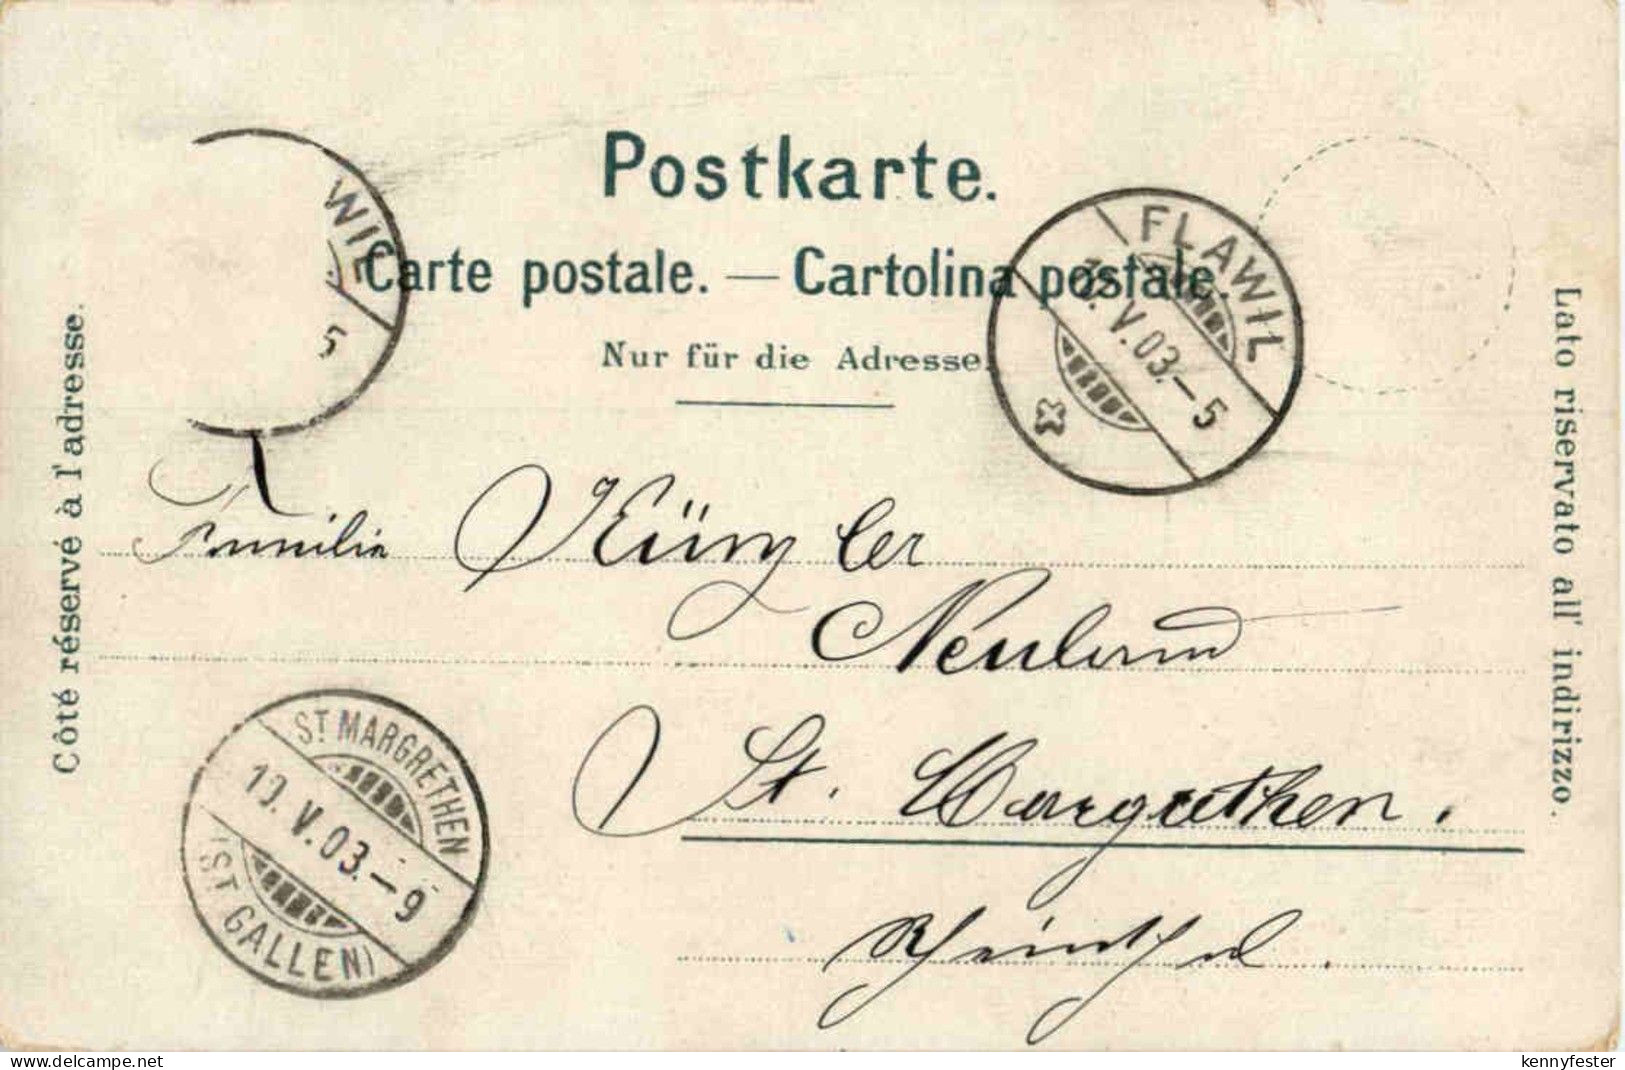 Postkarte.
Carte postale. — Cartolina postale.
Nur für die Adresse.
Côté réservé à l'adresse.
Lato riservato all' indirizzo.
WIL
5
FLAWIL
V.03.–5
Familie Künzler
Neuland
St. Margrethen.
Rheinthal.
ST MARGRETHEN
10. V. 03.–9
(ST GALLEN)
www.delcampe.net
kennyfester